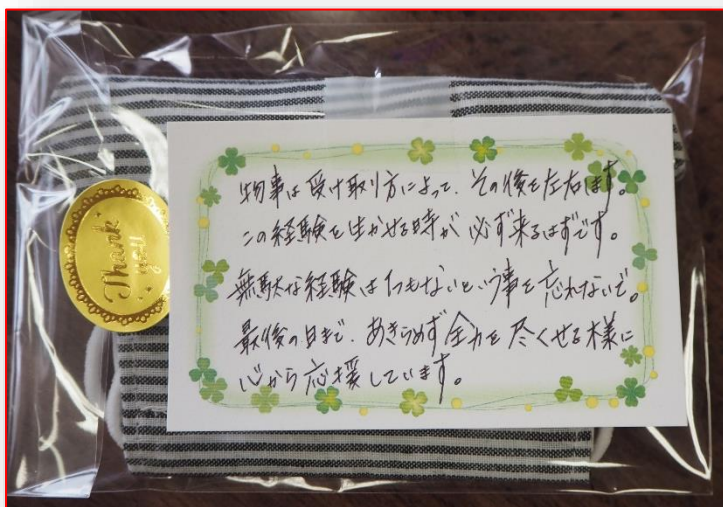 Thank
you
物事は受け取り方によって、その後を左右します。
この経験を生かせる時が必ず来るはずです。
無駄な経験は1つもないという事を忘れないで。
最後の日まで、あきらめず全力を尽くせる様に
心から応援しています。